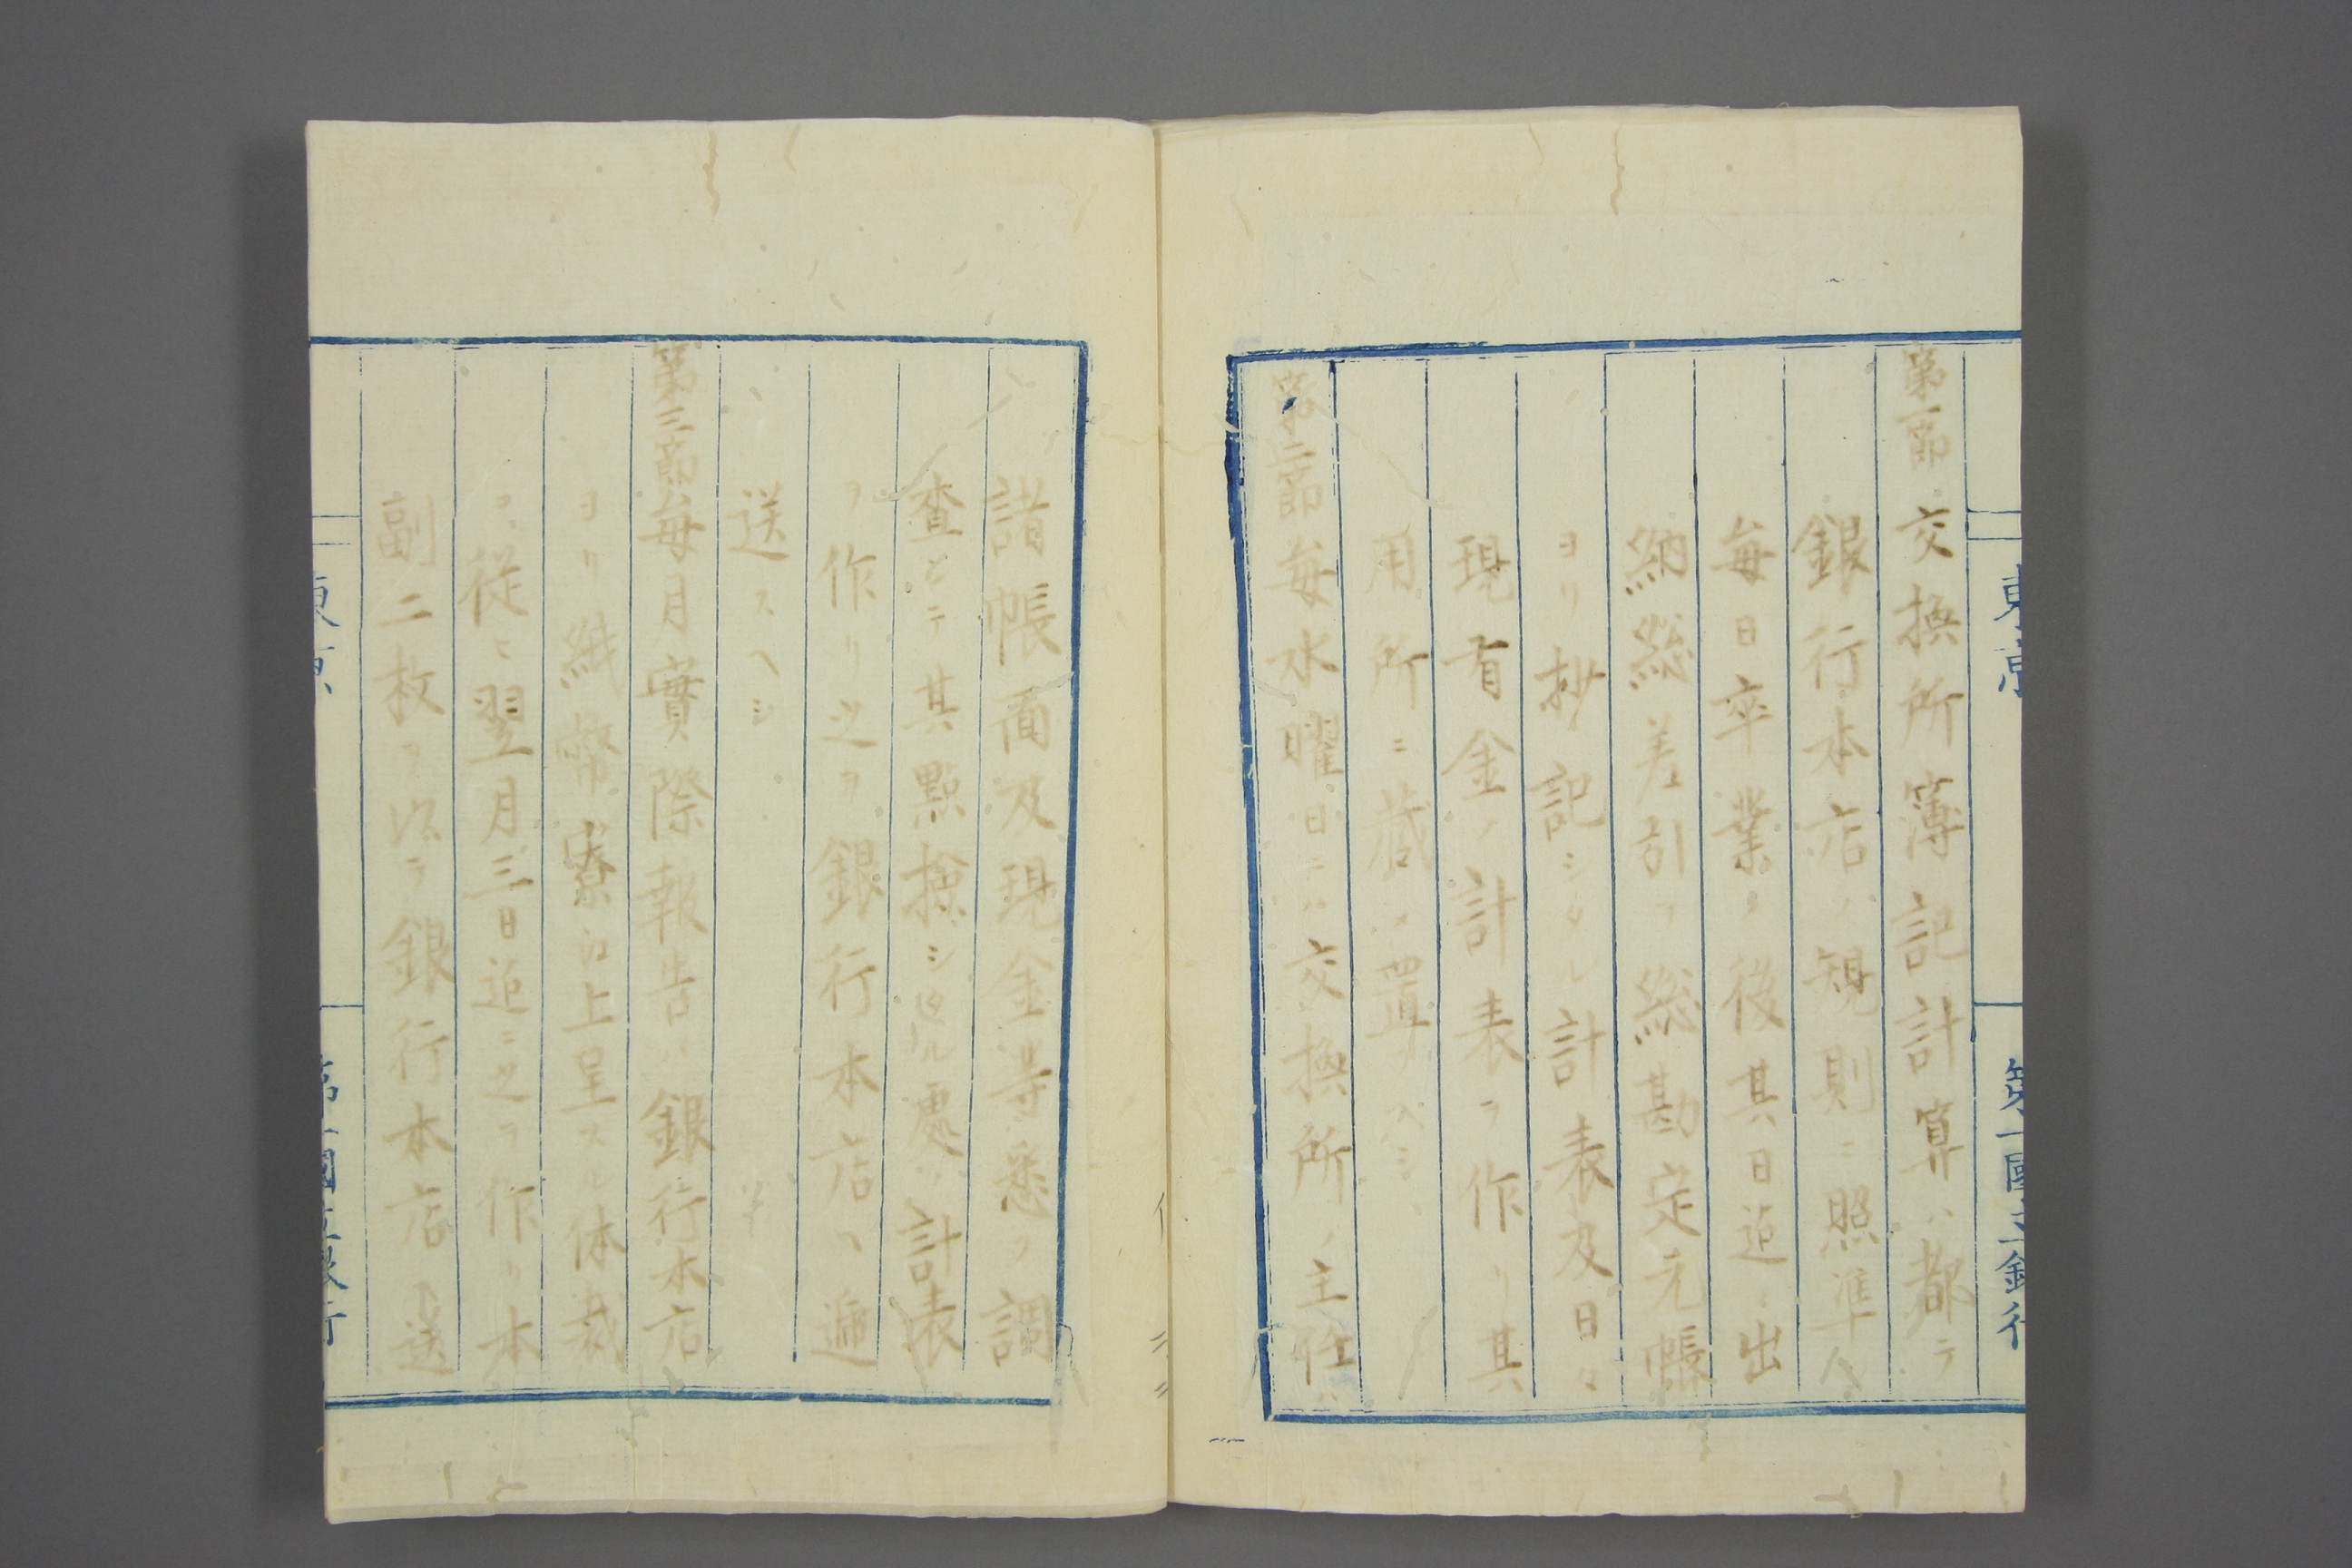 東京
第一國立銀行
第一節 交換所簿記計算ハ都テ
銀行本店ノ規則ニ照準シ
毎日卒業ノ後其日迄ノ出
納総差引ヲ総勘定元帳
ヨリ抄記シタル計表及日々
現有金ノ計表ヲ作リ其
用所ニ蔵メ置クヘシ
第二節 毎水曜日ニハ交換所ノ主任ハ
諸帳面及現金等悉ク調
査シテ其點検シタル處ノ計表
ヲ作リ之ヲ銀行本店ヘ逓
送スヘシ
第三節 毎月實際報告ハ銀行本店
ヨリ紙幣寮江上呈スル体裁
ニ従ヒ翌月三日迄ニ之ヲ作リ本
副二枚ヲ以テ銀行本店ヘ送
東京
第一國立銀行